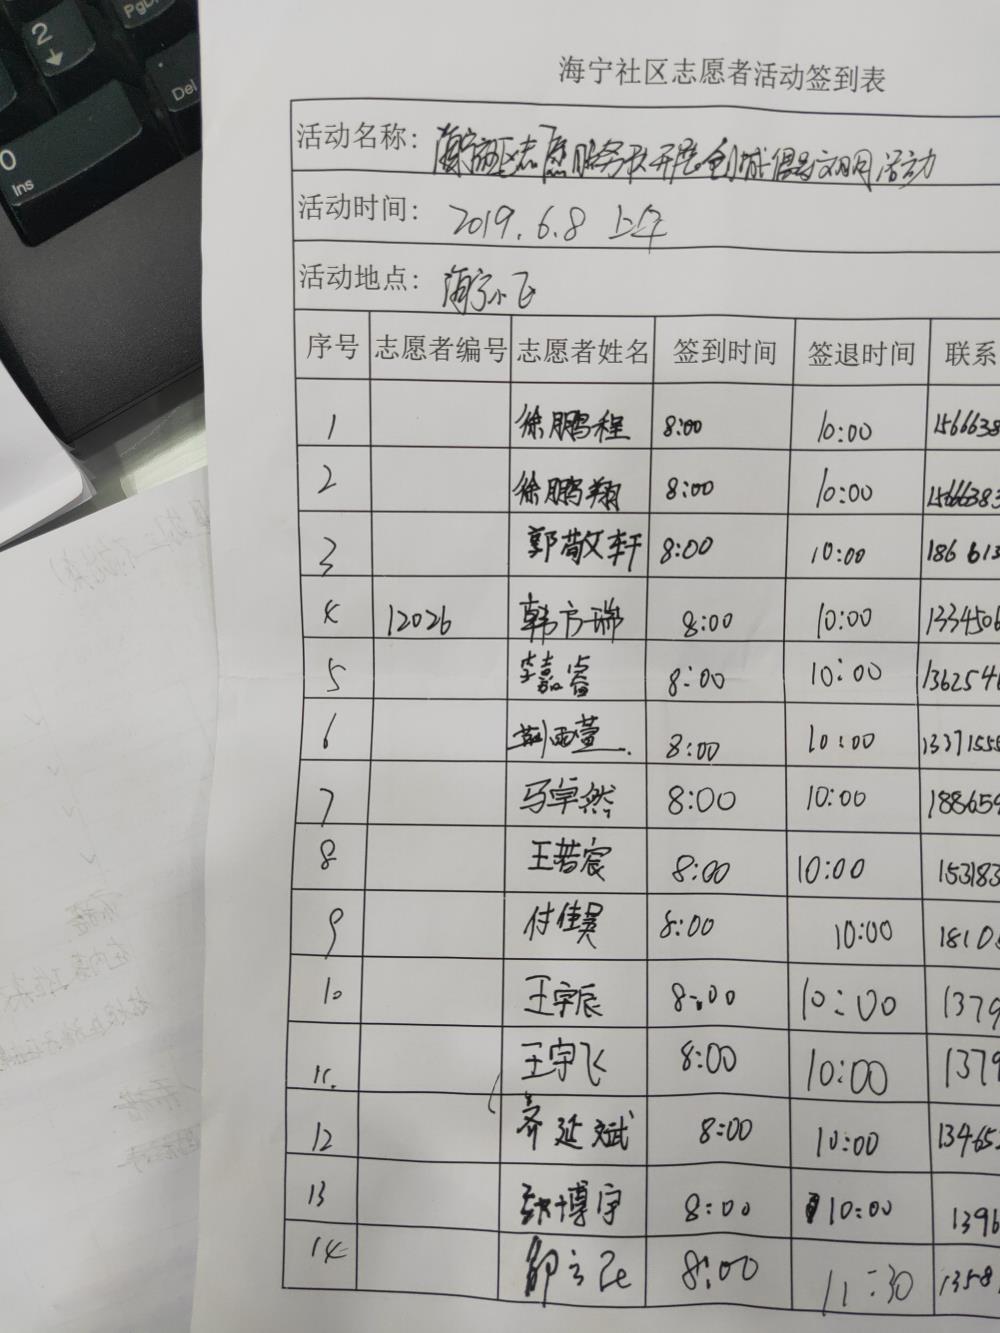 2
↓
PgD
Del
0
Ins
海宁社区志愿者活动签到表
活动名称: 海宁社区志愿服务队开展创城倡导文明活动
活动时间: 2019.6.8 上午
活动地点: 海宁小飞
序号 志愿者编号 志愿者姓名 签到时间 签退时间 联系
1 徐鹏程 8:00 10:00 1566638
2 徐鹏翔 8:00 10:00 15666383
3 郭敬轩 8:00 10:00 186 613
4 12026 韩方瑞 8:00 10:00 1334506
5 李嘉睿 8:00 10:00 1362546
6 荆雨萱 8:00 10:00 13371555
7 马卓然 8:00 10:00 188659
8 王若宸 8:00 10:00 153183
9 付佳昊 8:00 10:00 18105
10 王宇辰 8:00 10:00 1379
11. 王宇飞 8:00 10:00 1379
12 齐延斌 8:00 10:00 13465
13 张博宇 8:00 10:00 1396
14 8:00 11:30 1358